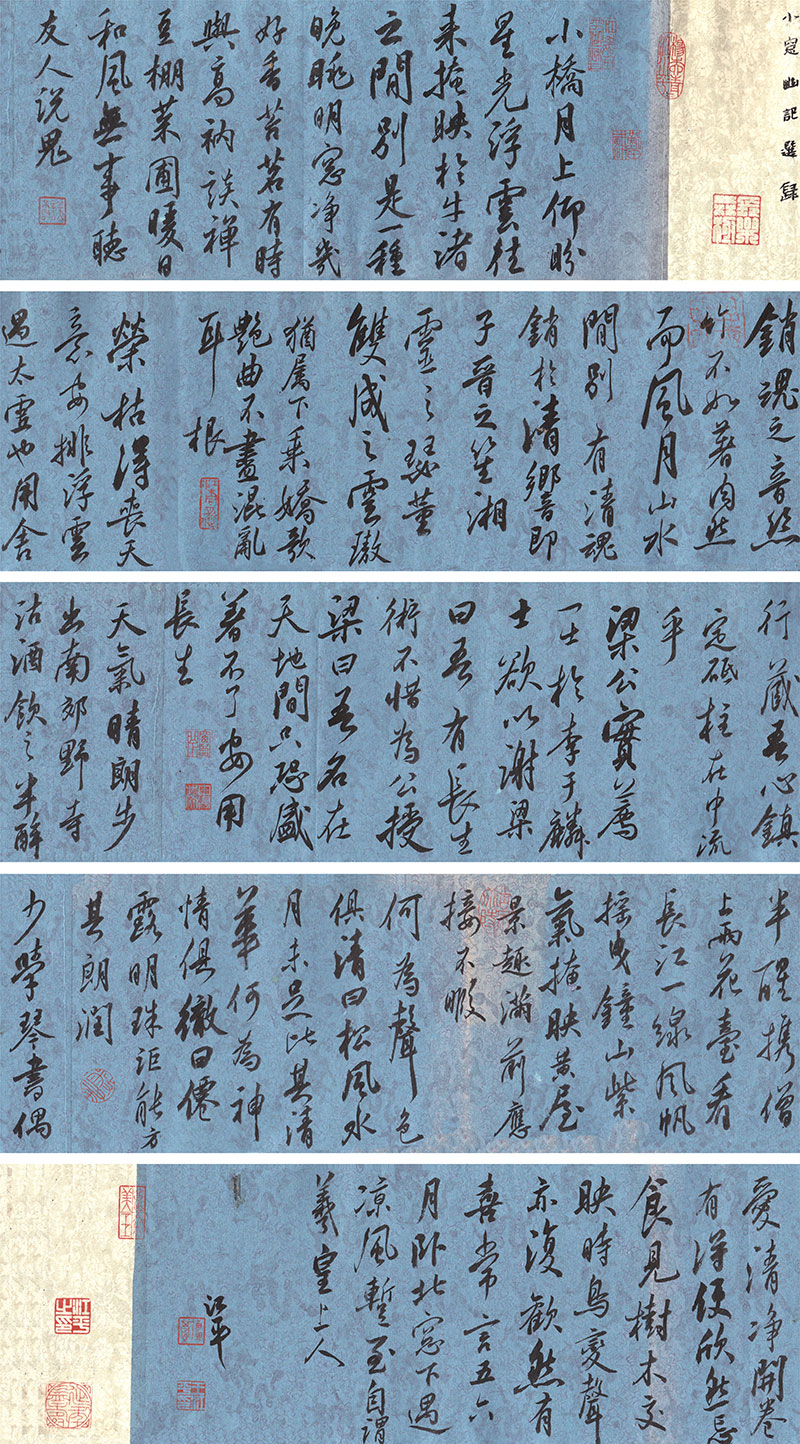 小窓幽記選録
小橋月上仰盼
星光浮雲往
来掩映於牛渚
之間別是一種
晚眺明窓净幾
好香苦茗有時
與高衲談禅
豆棚菜圃暖日
和風無事聽
友人説鬼
銷魂之音絲
竹不如著肉然
而風月山水
間別有清魂
銷於清響即
子晉之笙湘
靈之瑟董
雙成之雲璈
猶属下乗嬌歌
艶曲不盡混亂
耳根
榮枯得喪天
意安排浮雲
過太虚也用舍
行藏吾心鎮
定砥柱在中流
乎
梁公實薦
一士於李于麟
士欲以謝梁
曰吾有長生
術不惜為公授
梁曰吾名在
天地間只恐盛
著不了安用
長生
天氣晴朗步
出南郊野寺
沽酒飲之半醉
半醒携僧
上雨花臺看
長江一線風帆
摇曳鐘山紫
氣掩映黄屋
景趣滿前應
接不暇
何為聲色
俱清曰松風水
月未足比其清
華何為神
情俱徹曰僊
露明珠詎能方
其朗潤
少學琴書偶
愛清净開卷
有得便欣然忘
食見樹木交
映時鳥變聲
亦復歡然有
喜常言五六
月卧北窓下遇
凉風暫至自謂
羲皇上人
江平